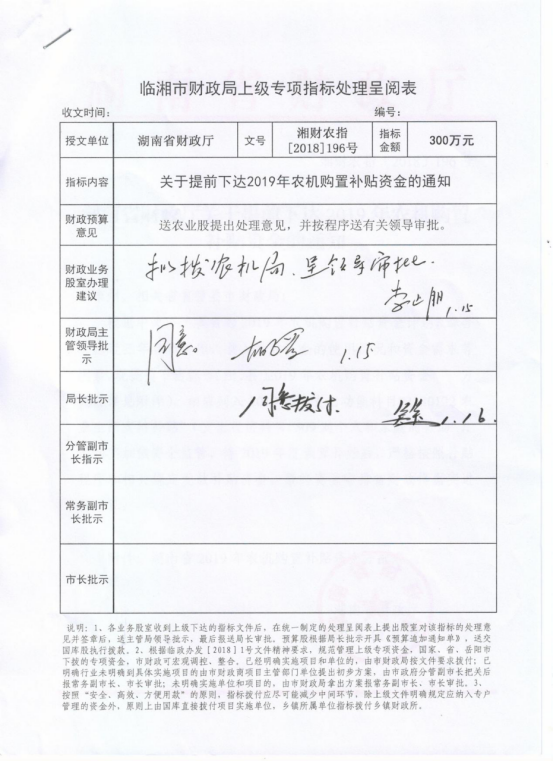 临湘市财政局上级专项指标处理呈阅表
收文时间： 编号：
授文单位 湖南省财政厅 文号 湘财农指[2018]196号 指标金额 300万元
指标内容 关于提前下达2019年农机购置补贴资金的通知
财政预算意见 送农业股提出处理意见，并按程序送有关领导审批。
财政业务股室办理建议 拟拨农机局、呈领导审批.
1.15
财政局主管领导批示 同意。 1.15
局长批示 同意拨付. 1.16.
分管副市长指示
常务副市长批示
市长批示
说明：1、各业务股室收到上级下达的指标文件后，在统一制定的处理呈阅表上提出股室对该指标的处理意
见并签章后，送主管局领导批示，最后报送局长审批。预算股根据局长批示开具《预算追加通知单》，送交
国库股执行拨款。2、根据临政办发[2018]1号文件精神要求，规范管理上级专项资金，国家、省、岳阳市
下拨的专项资金，市财政可宏观调控、整合。已经明确实施项目和单位的，由市财政局按文件要求拨付；已
明确行业未明确到具体实施项目的由市财政商项目主管部门单位提出初步方案，由市政府分管副市长把关后
报常务副市长、市长审批；未明确实施单位和项目的，由市财政局拿出方案报常务副市长、市长审批。3、
按照“安全、高效、方便用款”的原则，指标拨付应尽可能减少中间环节，除上级文件明确规定应纳入专户
管理的资金外，原则上由国库直接拨付项目实施单位，乡镇所属单位指标拨付乡镇财政所。